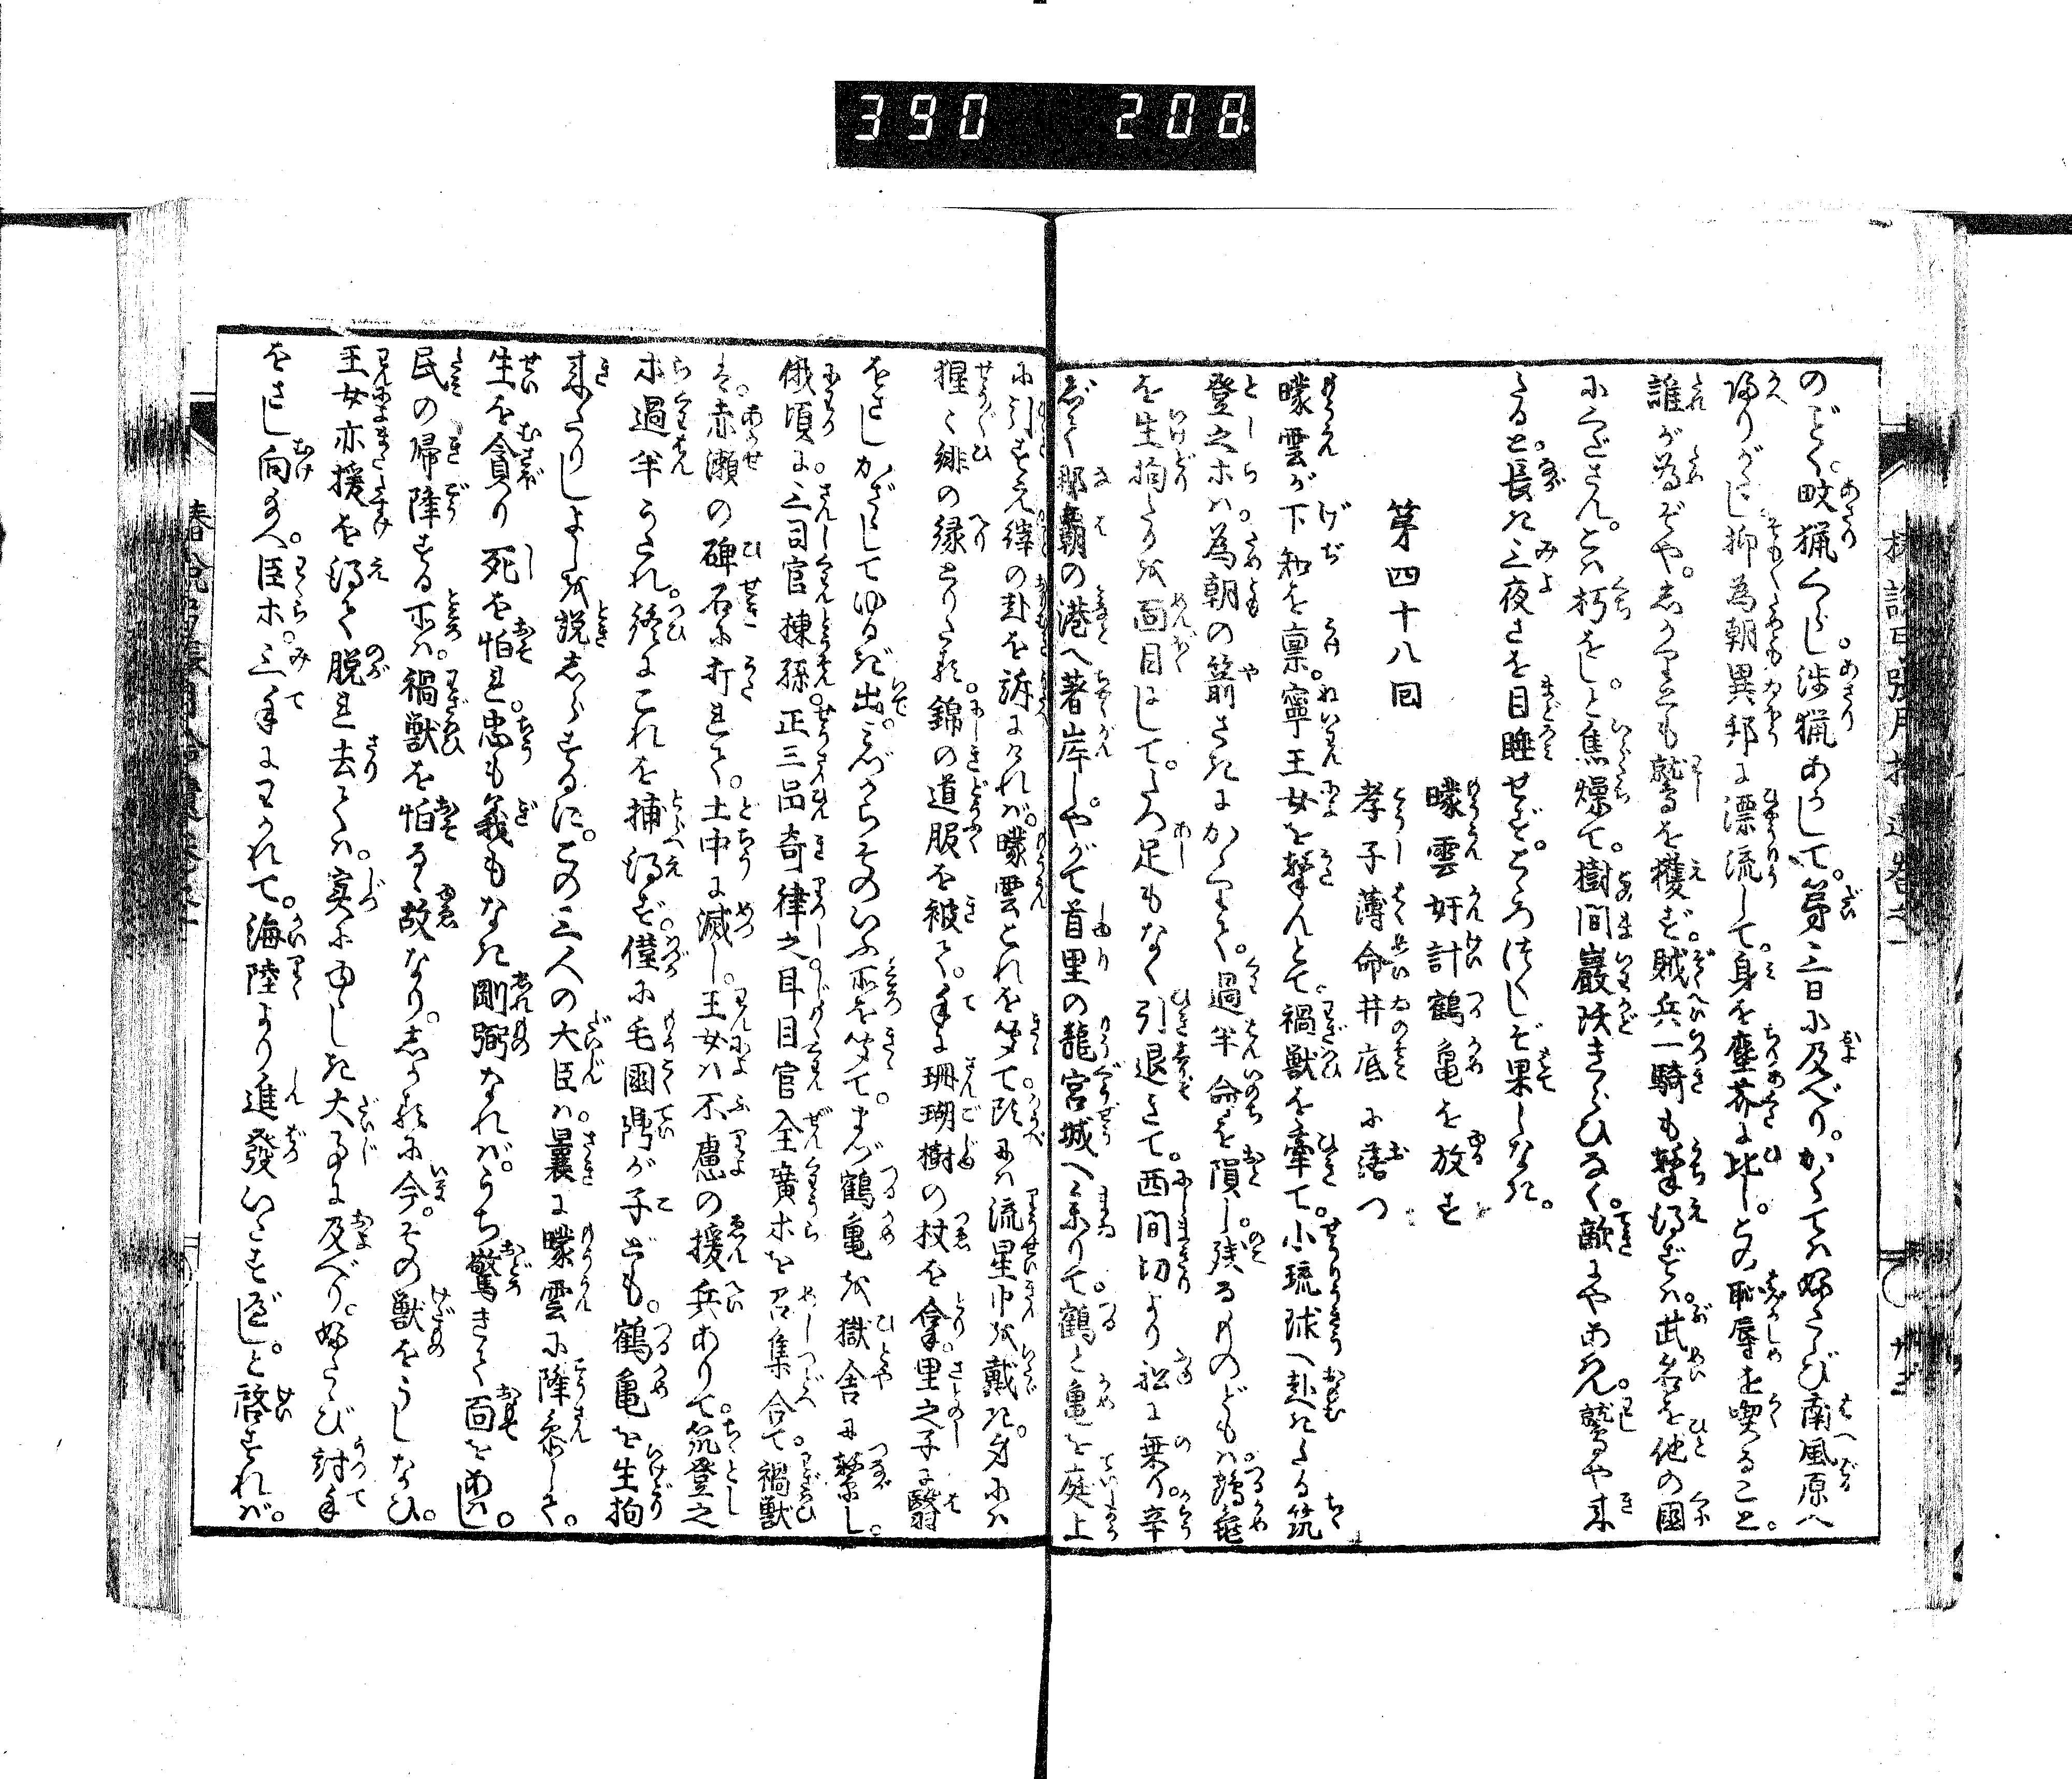 390 208
のごとく。畋猟くらし渉猟あかして。第三日に及べり。かくては再び南風原へ
帰りがたし抑為朝異邦に漂流して。身を塵芥に比し。この恥辱を喫ること。
誰が為ぞや。しかれども鷲を獲ず。賊兵一騎も撃得ずは。武名を他の國
に下さん。とは朽をし。と焦燥て。樹間巖陝きらひなく。敵にやあらん。鷲や来
たると。長き三夜さを目睡せず。こころつくしぞ果しなき。
第四十八回
矇雲奸計鶴亀を放す
孝子薄命井底に落つ
矇雲が下知を稟。寧王女を撃んとて。禍獣を牽て。小琉球へ赴きたる筑
登之等は。為朝の箭さきにかかりて。過半命を隕し。残るものどもは。鶴亀
を生拘たるを面目にして。たつ足もなく引退きて。西間切より舩に乗り。辛
じて那覇の港へ著岸し。やがて首里の龍宮城へ参りて。鶴と亀を庭上
に引すえ縡の赴を訴にければ。矇雲これを聞て。頭には流星巾を戴き。身には
猩々緋の縁とりたる。錦の道服を被て。手に珊瑚樹の杖を拿。里之子に翳
をさしかざしてゆるぎ出。みづからそのいふ所を聞て。まづ鶴亀を獄舎に繋し。
俄頃に。三司官棟孫。正三品奇律之耳目官全廣等を召集合て。禍獣
は。赤瀬の碑石に打れて。土中に滅し。王女は不慮の援兵ありて。筑登之
等過半うたれ。終にこれを捕得ず。僅に毛國鼎が子ども。鶴亀を生拘
来たりしよしを説しらするに。この三人の大臣は。曩に矇雲に降参しき。
生を貪り死を怕れ。忠も義もなき剛弱なれば。うち驚きて面をあはし。
民の帰降する所は。禍獣を怕るる故なり。しかるに今。その獣をうしなひ。
王女亦援を得て脱れ去ては。寔にゆゆしき大事に及べり。再び討手
をさし向給へ。臣等三手にわかれて。海陸より進發いたすべし。と啓すれば。